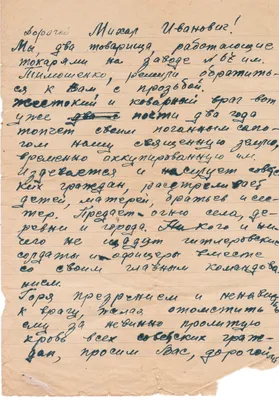 Дорогой Михал Иванович!
Мы, два товарища, работающие
токарями на заводе № 65 им.
Тимошенко, решили обратить-
ся к Вам с прозьбой.
Жестокий и коварный враг вот
уже два почти два года
топчет своим поганным сапо-
гом нашу священную землю,
временно аккупированную им.
Издевается и насилует советс-
ких граждан, расстреливает
детей, матерей, братьев и сес-
тер. Предает огню села, де-
ревни и города. Ни кого и ни-
чего не щадят гитлеровские
солдаты и офицеры вместе
со своим главным командова-
нием.
Горя презрением и ненавистью
к врагу, желая отомстить
ему за невинно пролитую
кровь всех советских граж-
дан, просим Вас, дорогой